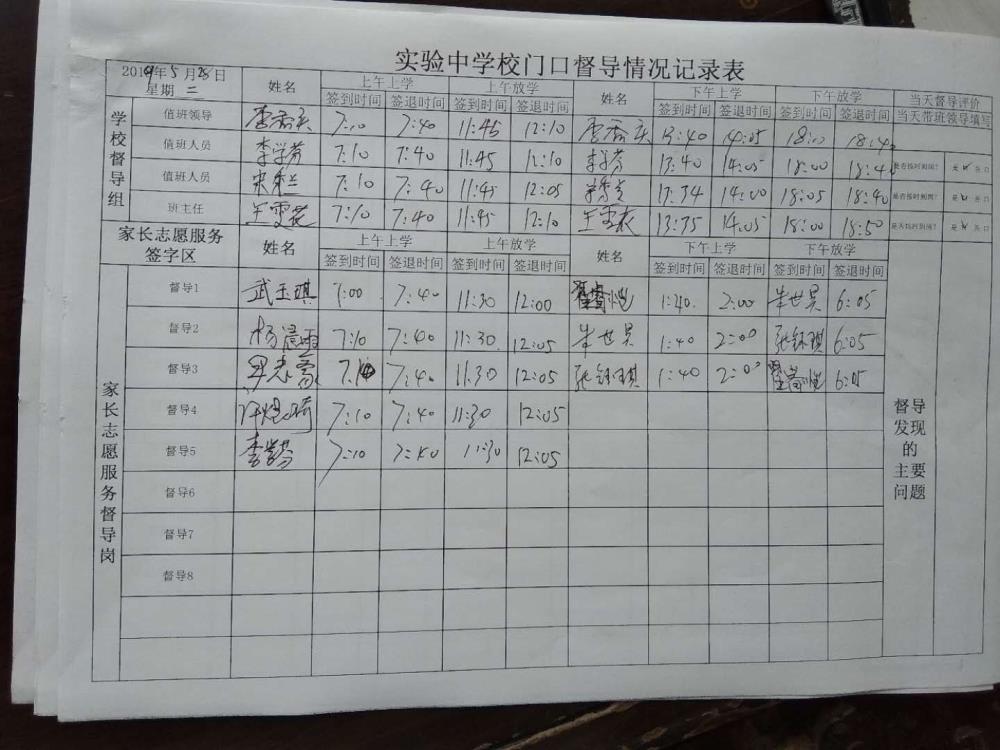 实验中学校门口督导情况记录表
2019年5月28日
星期 二
姓名 上午上学 上午放学 姓名 下午上学 下午放学 当天督导评价
签到时间 签退时间 签到时间 签退时间 签到时间 签退时间 签到时间 签退时间 当天带班领导填写
学校督导组
值班领导 7:10 7:40 11:45 12:10 13:40 14:05 18:00 18:40
值班人员 李学芬 7:10 7:40 11:45 12:10 李学芬 13:40 14:05 18:00 18:40 是否按时到岗? 是 否
值班人员 7:10 7:40 11:45 12:05 17:34 14:00 18:05 18:40 是否按时到岗? 是 否
班主任 王雯花 7:10 7:40 11:45 12:10 王雯花 13:35 14:05 18:00 18:50 是否按时到岗? 是 否
家长志愿服务
签字区
姓名 上午上学 上午放学 姓名 下午上学 下午放学
签到时间 签退时间 签到时间 签退时间 签到时间 签退时间 签到时间 签退时间
家长志愿服务督导岗
督导1 武玉琪 7:00 7:40 11:30 12:00 1:40 2:00 牛世昊 6:05
督导2 7:10 7:40 11:30 12:05 牛世昊 1:40 2:00 张钰琪 6:05
督导3 7:10 7:40 11:30 12:05 张钰琪 1:40 2:00 6:05
督导4 7:10 7:40 11:30 12:05
督导5 7:10 7:40 11:30 12:05
督导6
督导7
督导8
督导
发现
的
主要
问题